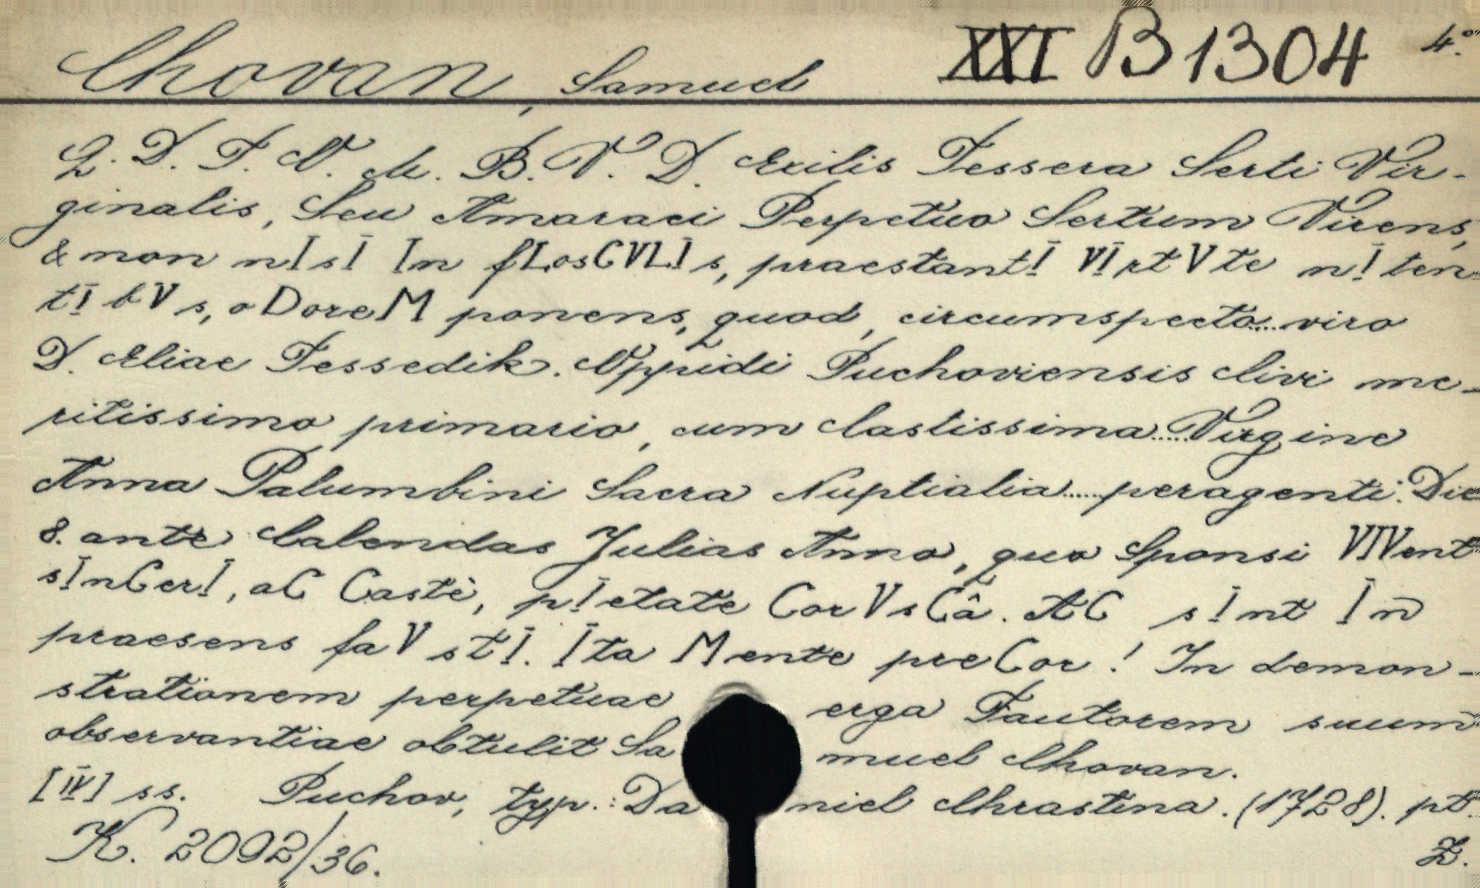 Chovan, Samuel XXI B 1304 4.°
Q. D. F. V. M. B. V. D. Exilis Tessera Serti Vir-
ginalis, Seu Amaraci Perpetuo Sertum Virens,
& non nIsI In fLosCVLIs, praestantI VIrtVte nIten-
tIbVs, oDoreM ponens, quod, circumspecto... viro
D. Eliae Tessedik. Oppidi Puchoviensis Civi me-
ritissimo primario, cum Castissima.... Virgine
Anna Palumbini Sacra Nuptialia.... peragenti. Die
8. ante Calendas Julias Anno, quo Sponsi VIVent
sInCerI, aC Castè, pIetate CorVsCâ. AC sInt In
praesens faVstI. Ita Mente preCor! In demon-
strationem perpetuae erga Fautorem suum
observantiae obtulit Samuel Chovan.
[IV] ss. Puchov, typ.: Daniel Chrastina. (1728). pt.
K. 2092/36. Z.